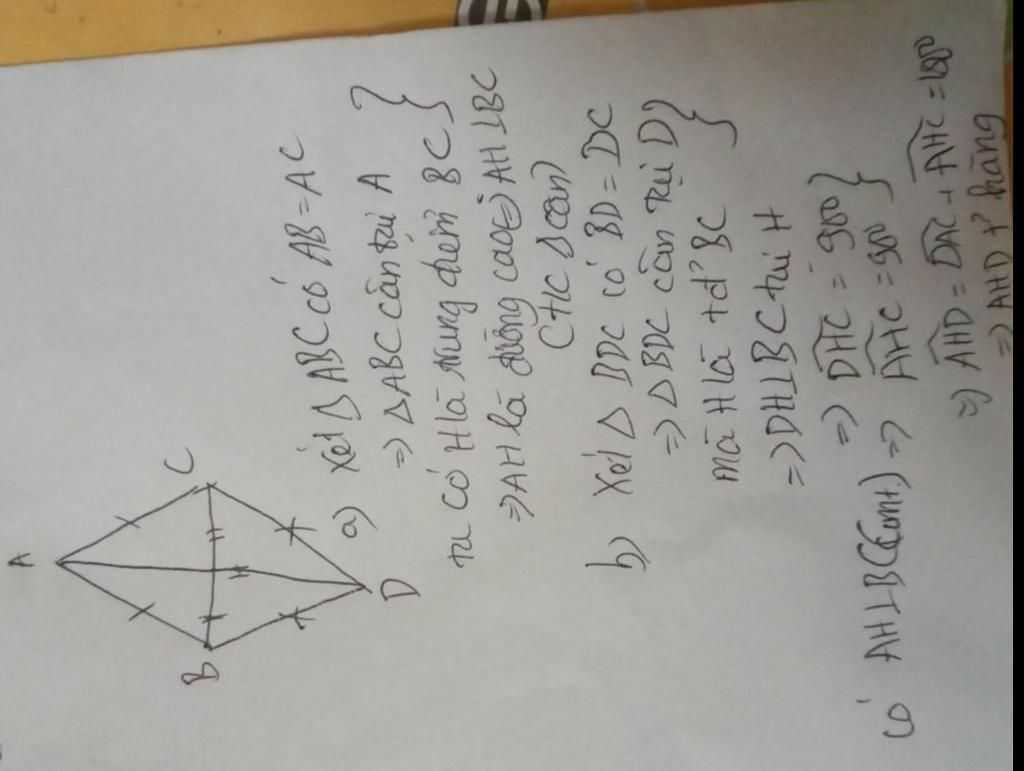 A
B
C
H
D
a) Xét Δ ABC có AB = AC
=> Δ ABC cân tại A }
ta có H là trung điểm BC }
=> AH là đường cao => AH ⊥ BC
(t/c Δ cân)
b) Xét Δ BDC có BD = DC
=> Δ BDC cân tại D }
mà H là tđ' BC }
=> DH ⊥ BC tại H
=> DHC = 90° }
có AH ⊥ BC (cmt) => AHC = 90° }
=> AHD = DAC + AHC = 180°
=> AHD t' hàng